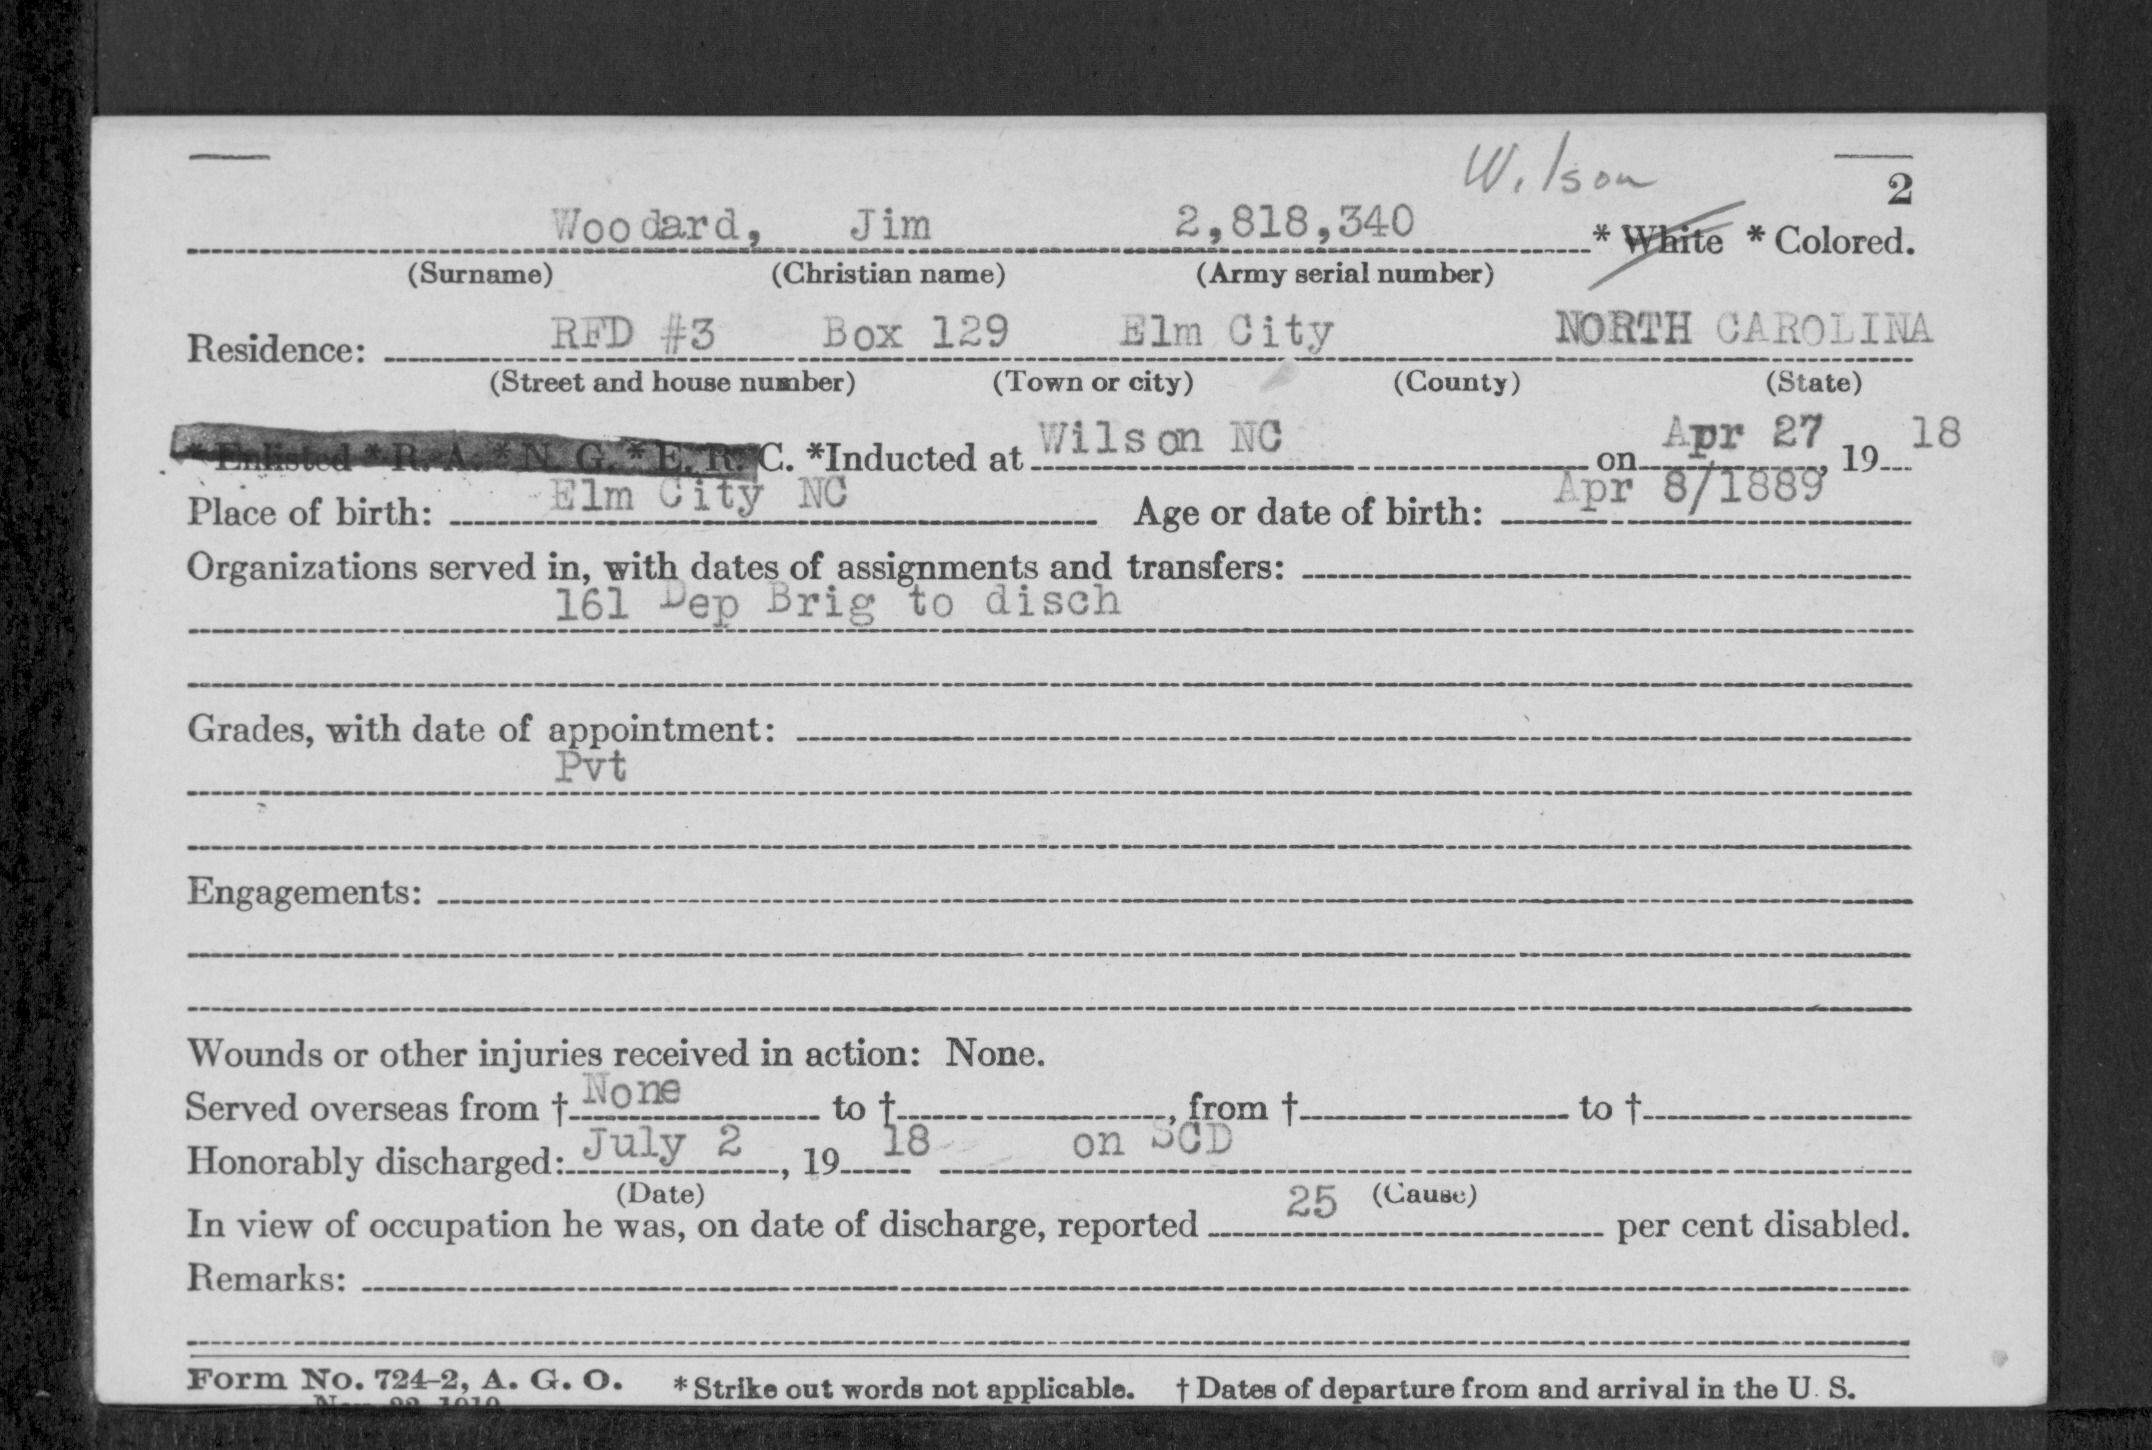 Wilson
2
Woodard, Jim 2,818,340 * White * Colored.
(Surname) (Christian name) (Army serial number)
Residence: RFD #3 Box 129 Elm City NORTH CAROLINA
(Street and house number) (Town or city) (County) (State)
* Enlisted * R. A. * N. G. * E. R. C. *Inducted at Wilson NC on Apr 27, 19 18
Place of birth: Elm City NC Age or date of birth: Apr 8/1889
Organizations served in, with dates of assignments and transfers:
161 Dep Brig to disch
Grades, with date of appointment:
Pvt
Engagements:
Wounds or other injuries received in action: None.
Served overseas from † None to †, from † to †
Honorably discharged: July 2, 19 18 on SCD
(Date) (Cause)
In view of occupation he was, on date of discharge, reported 25 per cent disabled.
Remarks:
Form No. 724-2, A. G. O. * Strike out words not applicable. † Dates of departure from and arrival in the U. S.